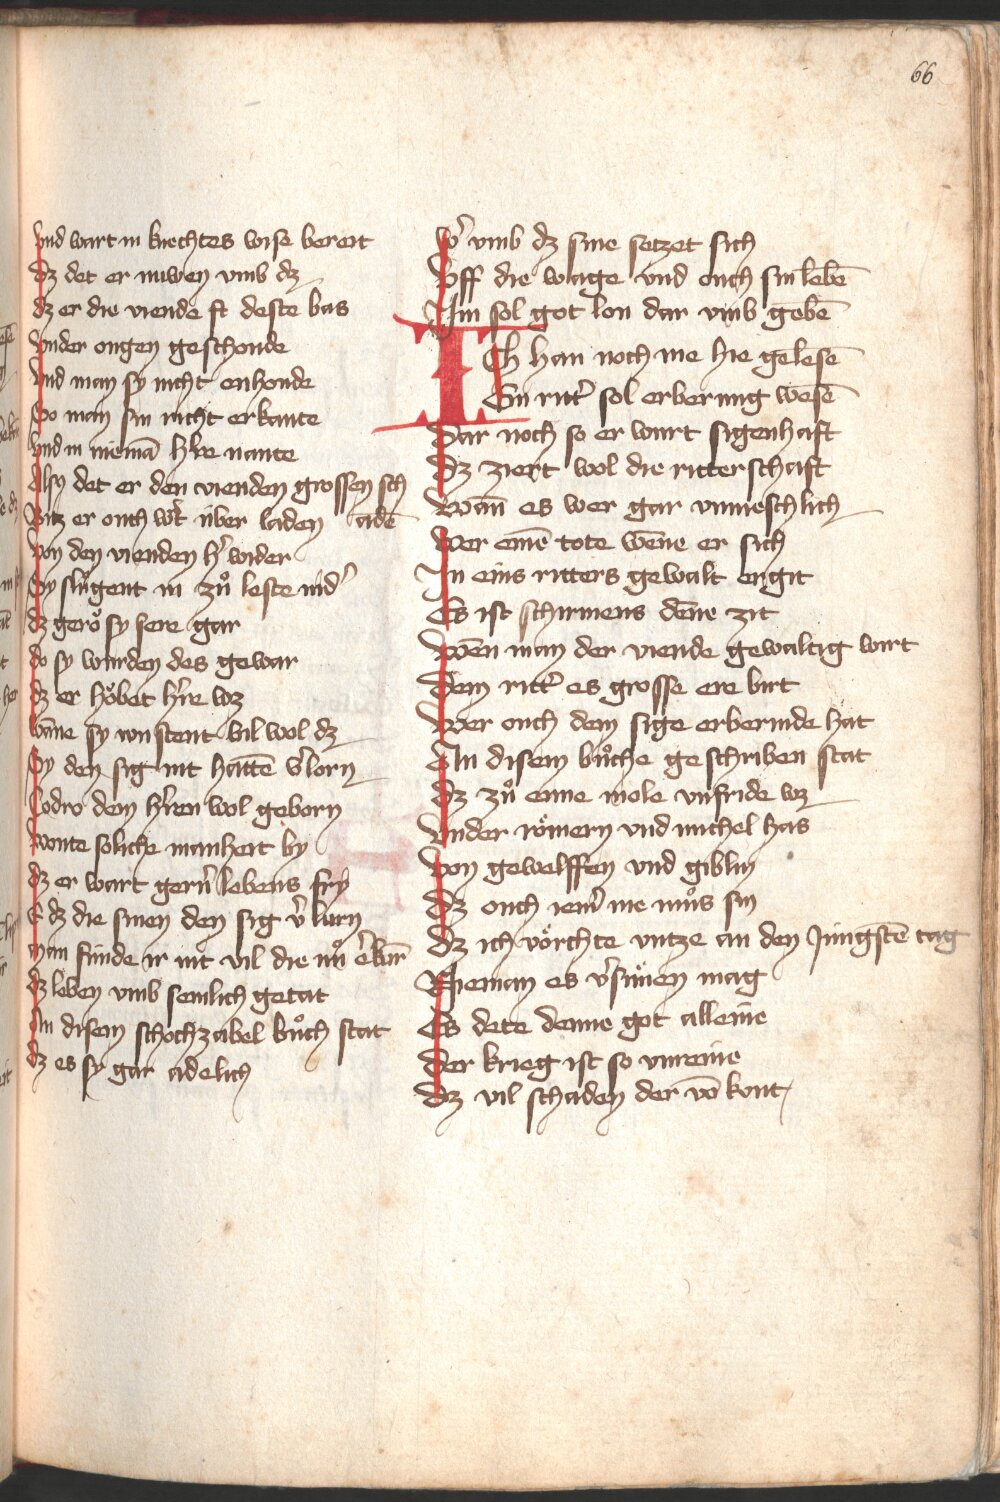 66
vnd wart in knechtes wise bereit
dz det er nuwen vmb dz
dz er die viende st deste bas
vnder ougen geschonde
vnd man sy nicht enhonde
So man sin nicht erkante
vnd in niemā h're nante
Alsy det er den vienden grossen sch
Bitz er ouch w't über laden aden
von den vienden h' wider
Sy slůgent in zů leste nid'
dz gerŏ sy sere gar
do sy wurden des gewar
dz er hŏbet h're wz
wāne sy wustent vil wol dz
Sy den sig nit hattē v'lorn
Codro dem h'ren wol geborn
wonte soliche manheit by
dz er wart gern lebens fry
E dz die sinen den sig v'lurn
man funde ir nit vil die nů
dz leben vmb semlich getat
In disem schochzabel bůch stat
dz es sy gar adelich
w' vmb dz sine setzet sich
Vff die wage vnd ouch sin lebē
Im sol got lon dar vmb gebē
ICh han noch me hie gelesē
Ein ritt' sol erbermig wesē
Dar noch so er wurt sigenhaft
Dz ziert wol die ritterschaft
Wān es wer gar vnmēschlich
Der eīnē tote wēne er sich
In eins ritters gewalt ergit
Es ist schirmens dēne zit
Wēn man der viende gewaltig wirt
Dem ritt' es grosse ere birt
Wer ouch dem sige erbermde hat
An disem bůche geschriben stat
Dz zů eime mole vnfride wz
Vnder rŏmern vnd michel has
Von gewelffen vnd giblin
Dz ouch iem' me můs sin
Dz ich vŏrchte vntze an den Jungstē tag
Nieman es v'sůnen mag
Es dete denne got alleine
Der krieg ist so vnreine
Dz vil schaden der vō kont